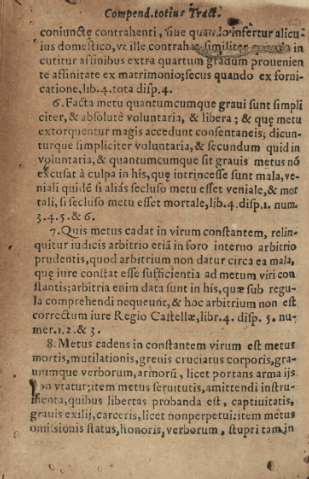 Compend. totius Tract.
coniunctę contrahenti, siue quando infertur alicu-
ius domestico, vt ille contrahat similiter in
cutitur affinibus extra quartum gradum prouenien
te affinitate ex matrimonio; secus quando ex forni-
catione, lib. 4. tota disp. 4.
6. Facta metu quantumcumque graui sunt simpli
citer, & absolutè voluntaria, & libera; & quę metu
extorquentur magis accedunt consentaneis; dicun-
turque simpliciter voluntaria, & secundum quid in
voluntaria, & quantumcumque sit grauis metus nõ
excusat à culpa in his, quę intrincesse sunt mala, ve-
niali quidẽ si aliàs secluso metu esset veniale, & mor
tali, si secluso metu esset mortale, lib. 4. disp. 1. num.
3. 4. 5. & 6.
7. Quis metus cadat in virum constantem, relin-
quitur iudicis arbitrio etiã in foro interno arbitrio
prudentis, quod arbitrium non datur circa ea mala,
quę iure constat esse sufficientia ad metum viri con
stantis; arbitria enim data sunt in his, quæ sub regu-
la comprehendi nequeunt, & hoc arbitrium non est
correctum iure Regio Castellæ, libr. 4. disp. 5. nu-
mer. 1. 2. & 3.
8. Metus cadens in constantem virum est metus
mortis, mutilationis, grauis cruciatus corporis, gra-
uiumque verborum, armorũ, licet portans arma ijs
non vtatur: item metus seruitutis, amittendi instru-
menta, quibus libertas probanda est, captiuitatis,
grauis exilij, carceris, licet non perpetui: item metus
omissionis status, honoris, verborum, stupri tam in